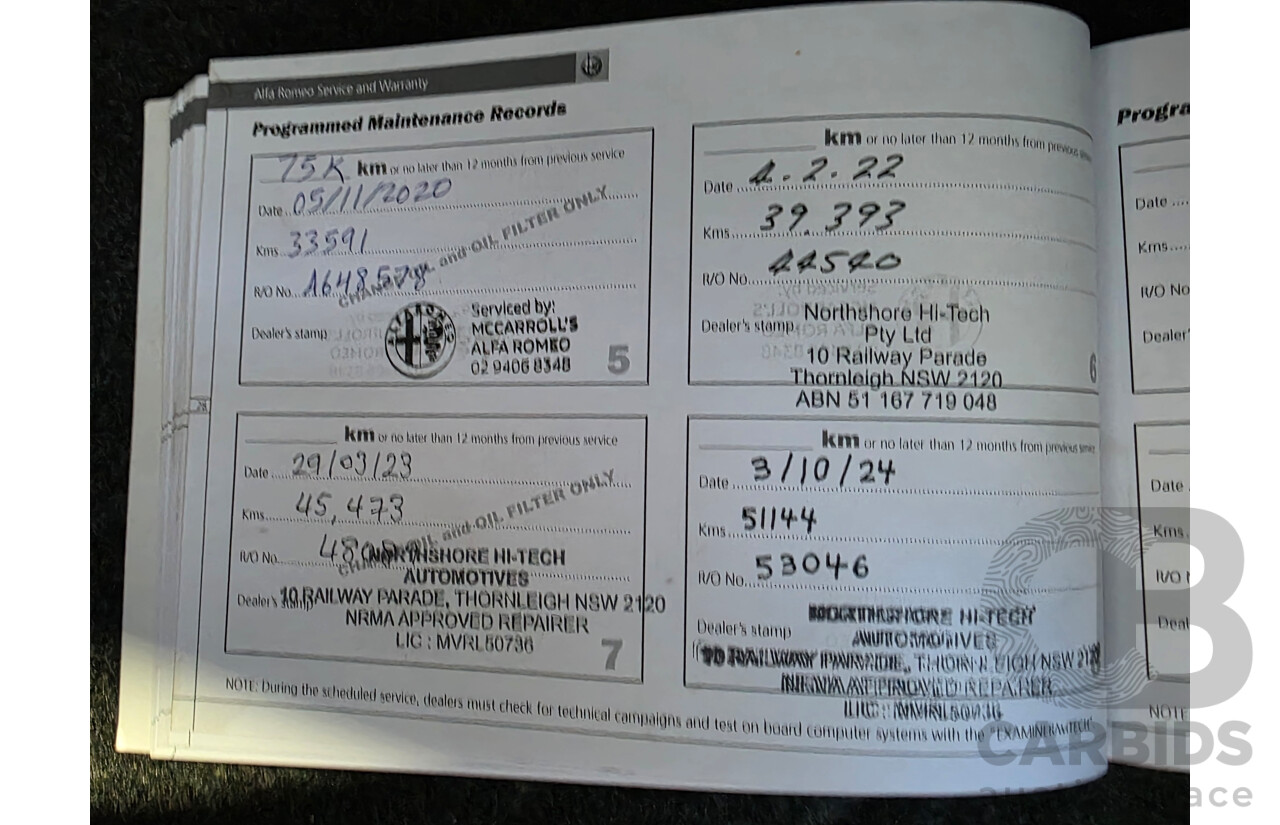 Alfa Romeo Service and Warranty
Programmed Maintenance Records
75K km or no later than 12 months from previous service
Date 05/11/2020
Kms 33591
CHANGE OIL and OIL FILTER ONLY
R/O No. A648578
Dealer's stamp
Serviced by:
MCCARROLL'S
ALFA ROMEO
02 9406 8348
5
km or no later than 12 months from previous service
Date 4.2.22
Kms 39.393
R/O No. 44540
Dealer's stamp
Northshore Hi-Tech
Pty Ltd
10 Railway Parade
Thornleigh NSW 2120
ABN 51 167 719 048
6
28
km or no later than 12 months from previous service
Date 29/03/23
Kms 45,473
CHANGE OIL and OIL FILTER ONLY
R/O No.
NORTHSHORE HI-TECH
AUTOMOTIVES
Dealer's stamp
10 RAILWAY PARADE, THORNLEIGH NSW 2120
NRMA APPROVED REPAIRER
LIC : MVRL50736
7
km or no later than 12 months from previous service
Date 3/10/24
Kms 51144
R/O No. 53046
Dealer's stamp
NORTHSHORE HI-TECH
AUTOMOTIVES
10 RAILWAY PARADE, THORNLEIGH NSW
NRMA APPROVED REPAIRER
LIC : MVRL50736
NOTE: During the scheduled service, dealers must check for technical campaigns and test on board computer systems with the "EXAMINER/WITECH"
Progra
Date
Kms
R/O No
Dealer'
Date
Kms
R/O
Deal
NOTE
CB
CARBIDS